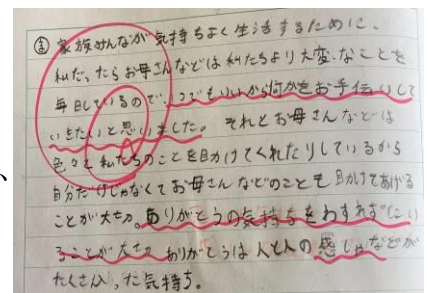 家族みんなが気持ちよく生活するために、
私だったらお母さんなどは私たちより大変なことを
毎日しているので、1つでもいいから何かをお手伝いして
いきたいと思いました。それとお母さんなどは
色々と私たちのことを目かけてくれたりしているから
自分だけじゃなくてお母さんなどのことも目かけてあげる
ことが大切。ありがとうの気持ちをわすれずにい
ることが大切 ありがとうは人と人の感じゃなどが
たくさん入った気持ち。
、